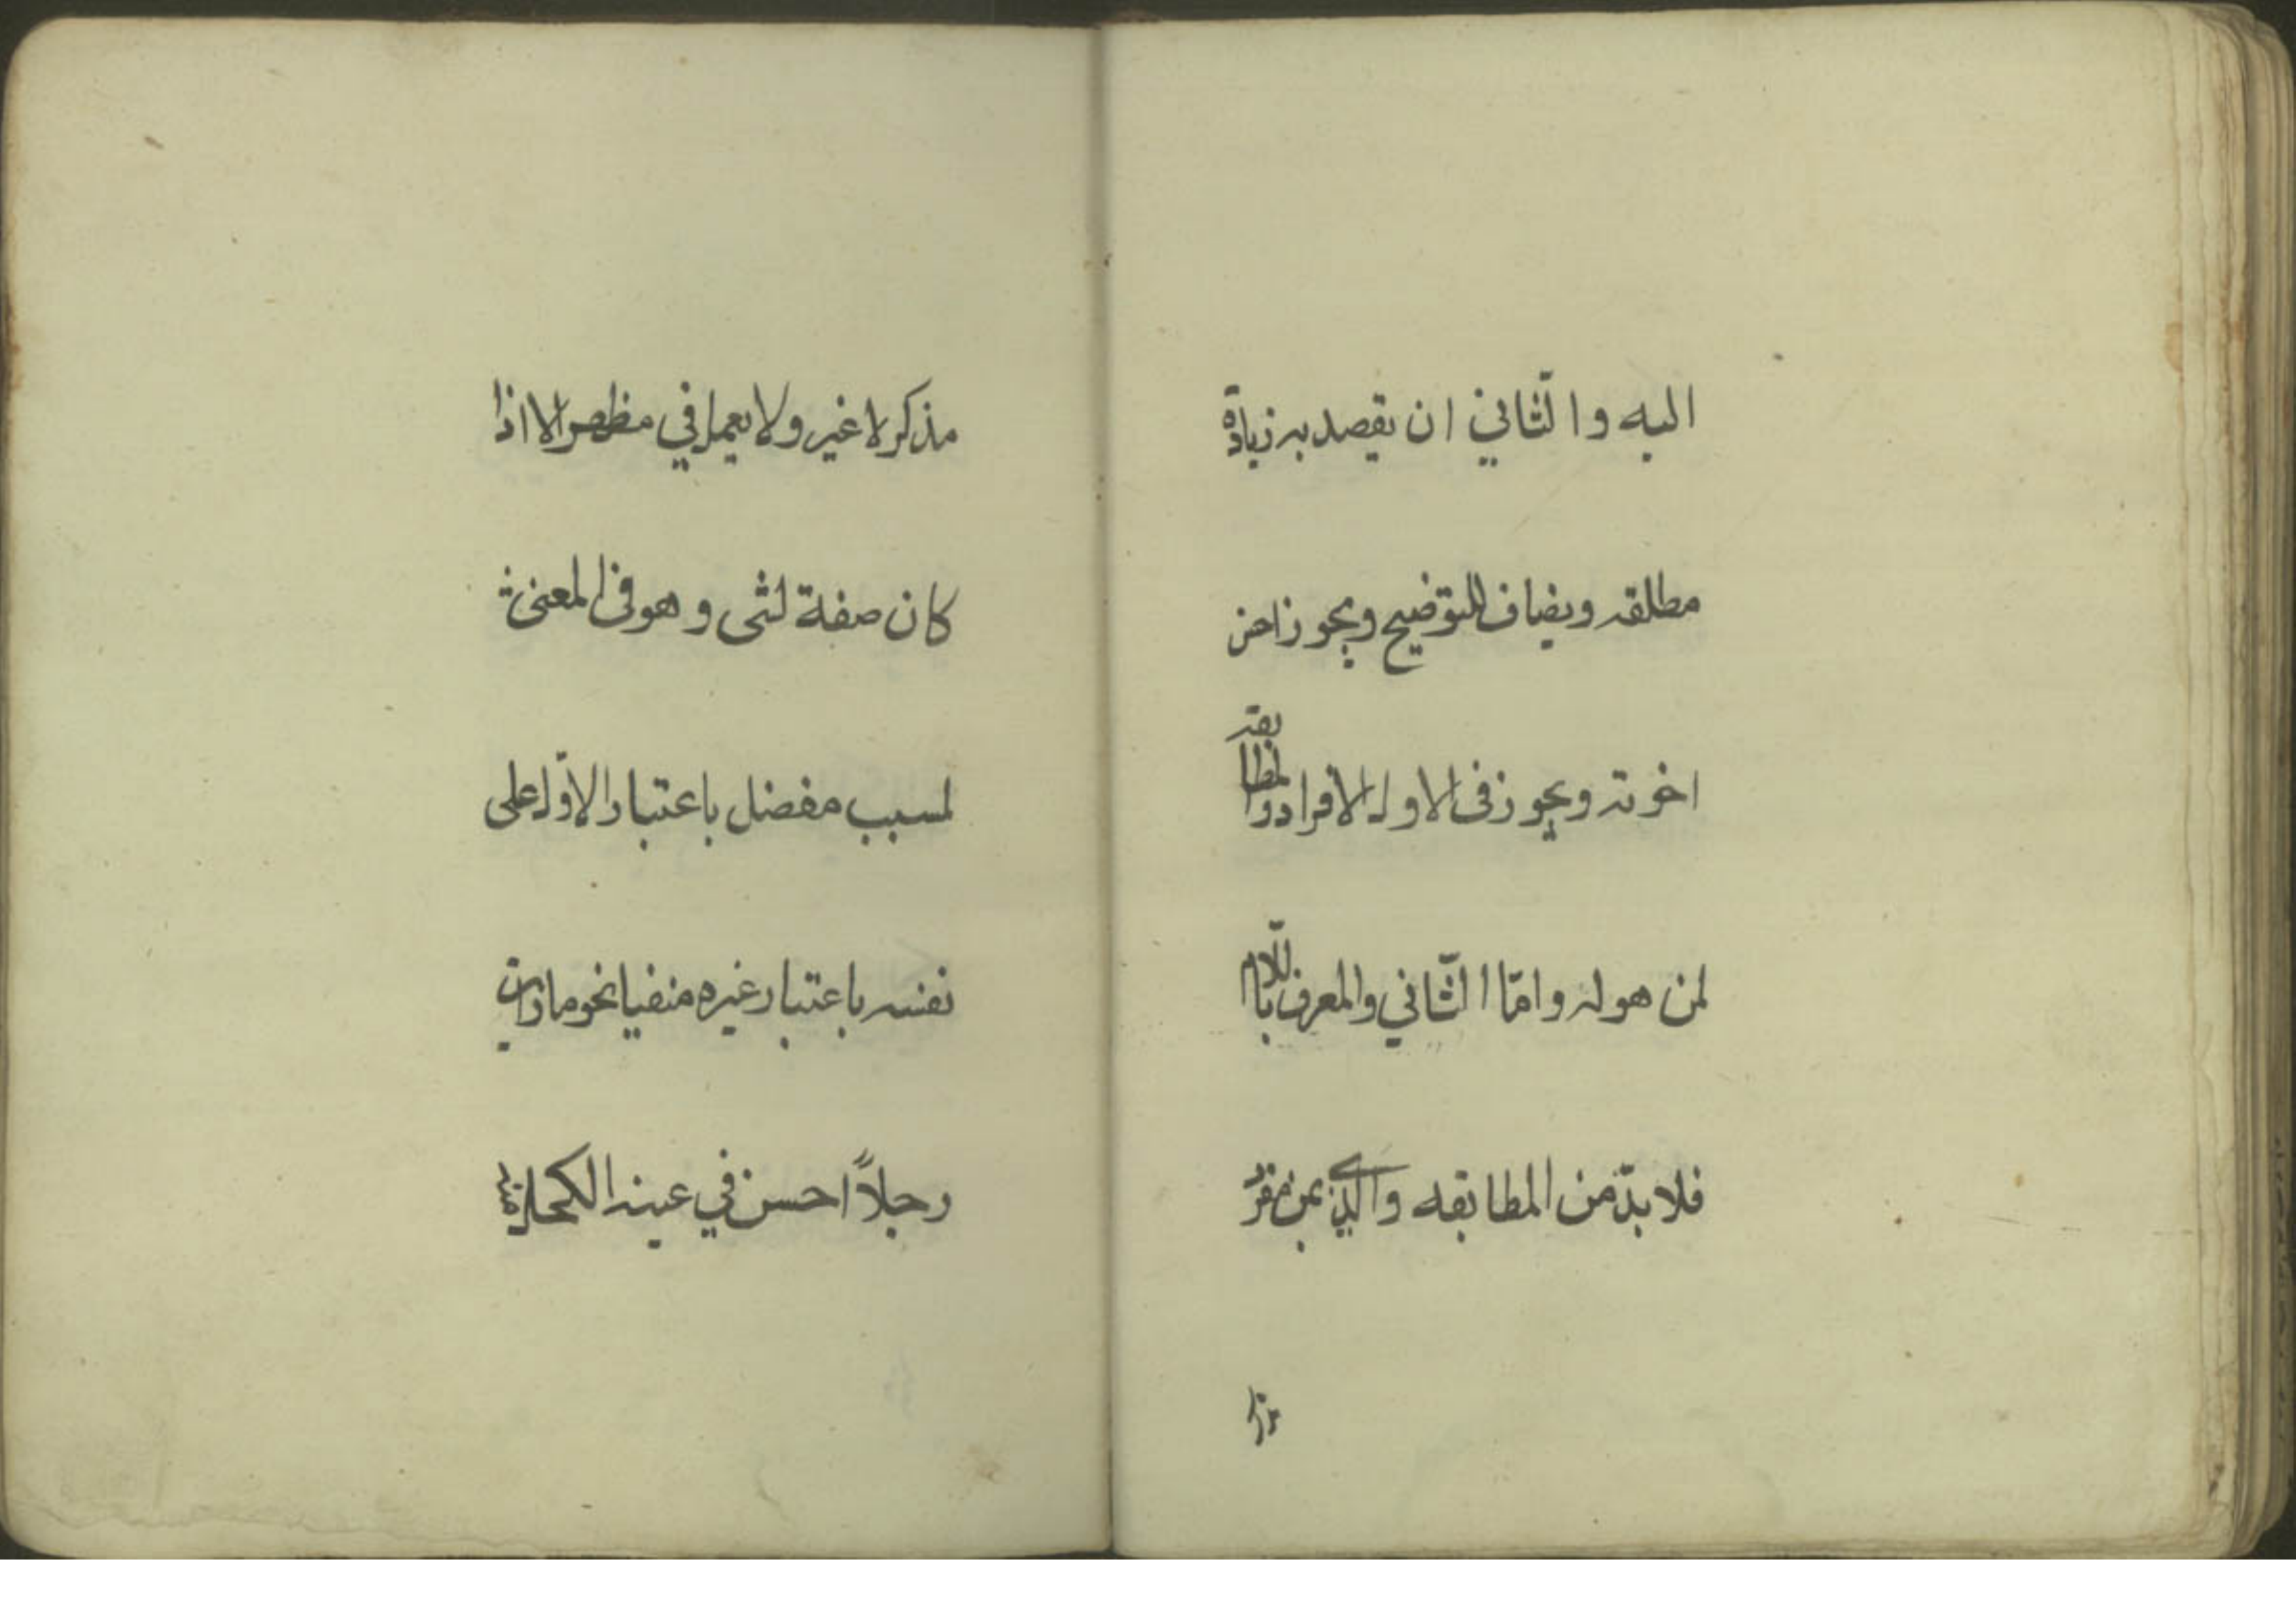 اليه والثّاني ان يقصد به زيادة
مطلقه ويضاف للتوضيح ويجوز احسن
اخوته ويجوز فى الاول الافراد والمطابقة
لمن هو له وامّا الثّاني والمعرف باللّام
فلا بدّ من المطابقه والذي بمن مفرد
مذكر لا غير ولا يعمل في مظهر الا اذا
كان صفة لشى وهو فى المعنى
لمسبب مفضل باعتبار الاوّل على
نفسه باعتبار غيره منفيا نحو ما رايت
رجلاً احسن في عينه الكحل